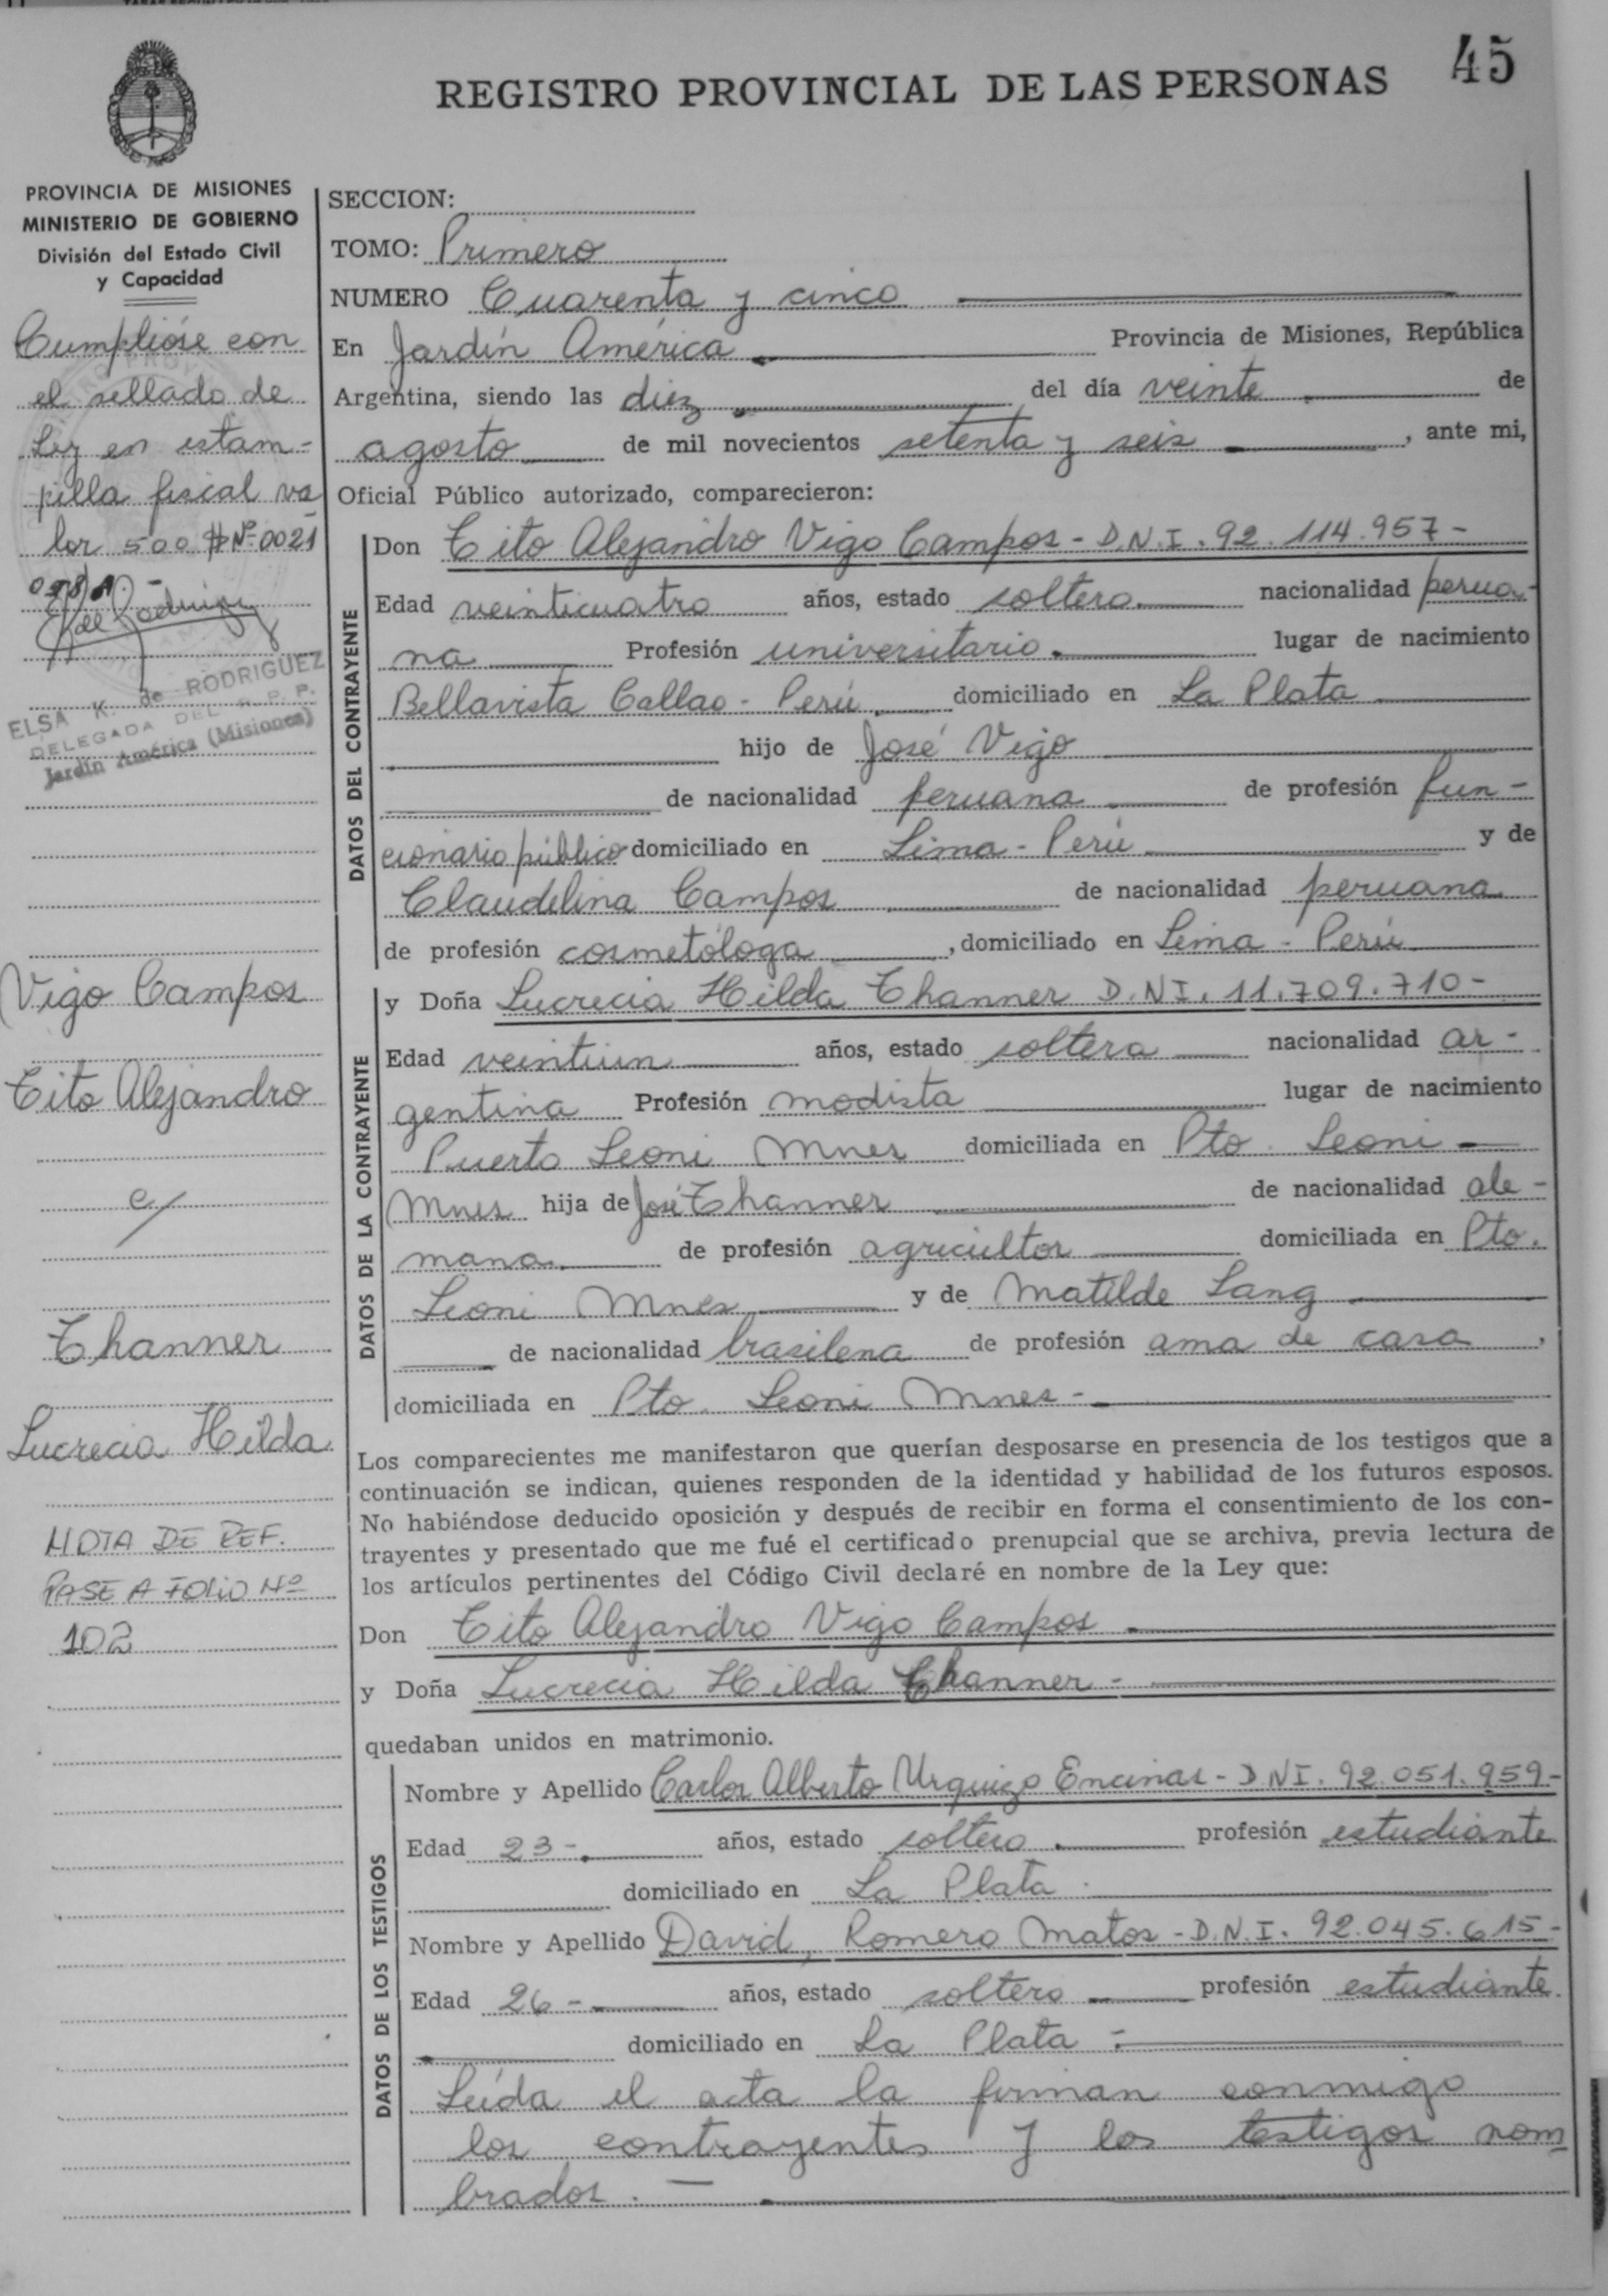 45
REGISTRO PROVINCIAL DE LAS PERSONAS
PROVINCIA DE MISIONES
MINISTERIO DE GOBIERNO
División del Estado Civil
y Capacidad
Cumplióse con
el sellado de
Ley en estam-
pilla fiscal va
lor 500 $ Nº 0021
ELSA K. de RODRIGUEZ
DELEGADA DEL R. P. P.
Jardín América (Misiones)
Vigo Campos
Tito Alejandro
c/
Thanner
Lucrecia Hilda
NOTA DE REF.
PASE A FOLIO Nº
102
SECCION:
TOMO: Primero
NUMERO Cuarenta y cinco
En Jardín América Provincia de Misiones, República
Argentina, siendo las diez del día veinte de
agosto de mil novecientos setenta y seis, ante mi,
Oficial Público autorizado, comparecieron:
DATOS DEL CONTRAYENTE
Don Tito Alejandro Vigo Campos - D.N.I. 92.114.957-
Edad veinticuatro años, estado soltero nacionalidad perua-
na Profesión universitario lugar de nacimiento
Bellavista Callao - Perú domiciliado en La Plata
hijo de José Vigo
de nacionalidad peruana de profesión fun-
cionario público domiciliado en Lima - Perú y de
Claudelina Campos de nacionalidad peruana
de profesión cosmetóloga, domiciliado en Lima - Perú
DATOS DE LA CONTRAYENTE
y Doña Lucrecia Hilda Thanner D.N.I. 11.709.710-
Edad veintiún años, estado soltera nacionalidad ar-
gentina Profesión modista lugar de nacimiento
Puerto Leoni Mnes domiciliada en Pto. Leoni
Mnes hija de José Thanner de nacionalidad ale-
mana de profesión agricultor domiciliada en Pto.
Leoni Mnes y de Matilde Lang
de nacionalidad brasilena de profesión ama de casa,
domiciliada en Pto. Leoni Mnes-
Los comparecientes me manifestaron que querían desposarse en presencia de los testigos que a
continuación se indican, quienes responden de la identidad y habilidad de los futuros esposos.
No habiéndose deducido oposición y después de recibir en forma el consentimiento de los con-
trayentes y presentado que me fué el certificado prenupcial que se archiva, previa lectura de
los artículos pertinentes del Código Civil declaré en nombre de la Ley que:
Don Tito Alejandro Vigo Campos
y Doña Lucrecia Hilda Thanner-
quedaban unidos en matrimonio.
DATOS DE LOS TESTIGOS
Nombre y Apellido Carlos Alberto Urquizo Encinas - D.N.I. 92.051.959-
Edad 23- años, estado soltero profesión estudiante
domiciliado en La Plata
Nombre y Apellido David, Romero Matos - D.N.I. 92.045.615-
Edad 26- años, estado soltero profesión estudiante.
domiciliado en La Plata
Leída el acta la firman conmigo
los contrayentes y los testigos nom
brados.-